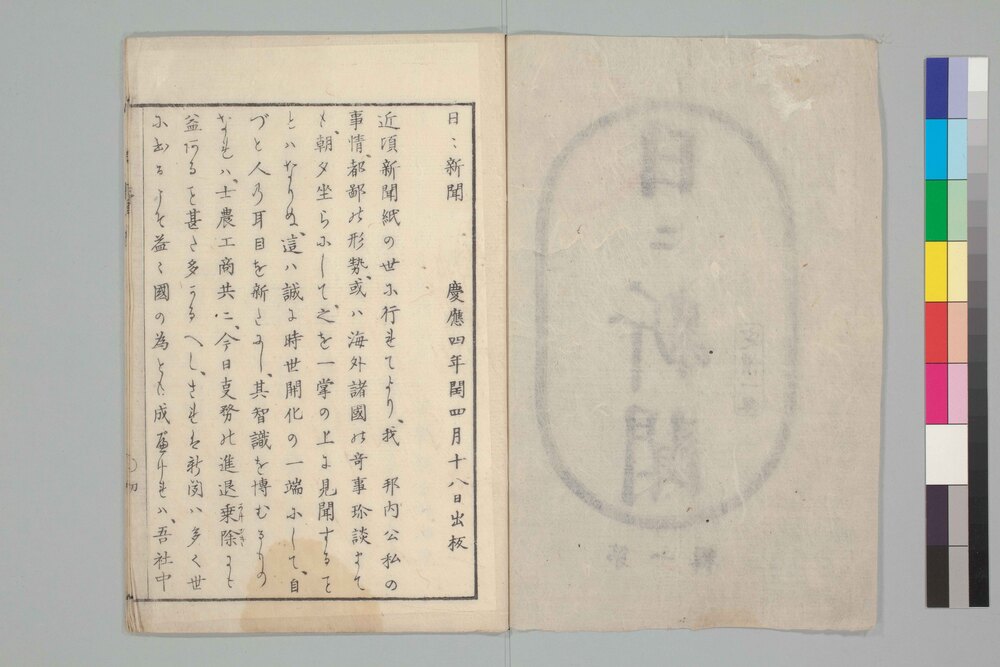 日々新聞　慶應四年閏四月十八日出板
近頃新聞紙の世に行れてより、我　邦内公私の
事情、都鄙の形勢、或ハ海外諸國の奇事珍談まで
も、朝夕坐らにして、之を一掌の上に見聞するを
とハなりぬ、這ハ誠に時世開化の一端にして、自
づと人の耳目を新にし、其智識を博むるもの
なれハ、士農工商共に、今日事務の進退乗除にも
益ある甚た多かるへし、されは新聞ハ多く世
に出るよと益々國の為とも成ハ、吾社中
日々新聞